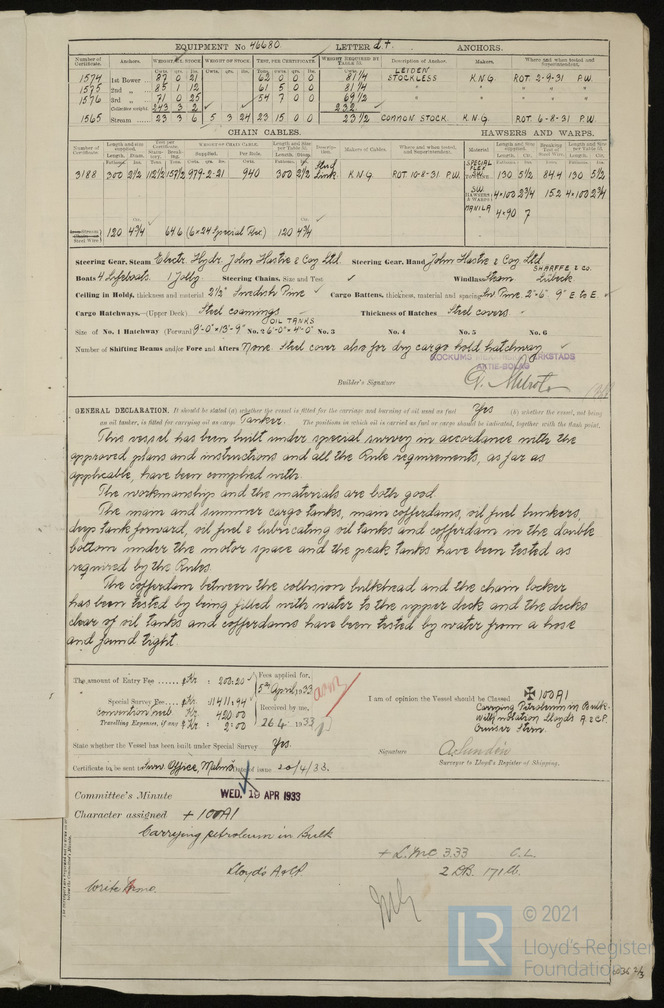 EQUIPMENT No 46680 LETTER d+ ANCHORS.
Number of Certificate. Anchors. WEIGHT, EX. STOCK WEIGHT OF STOCK. TEST, PER CERTIFICATE. WEIGHT REQUIRED BY TABLE 53. Description of Anchor. Makers. Where and when tested and Superintendent.
1574 1st Bower 87 0 21 62 0 0 0 81 1/4 LEIDEN STOCKLESS K.N.G. ROT 2-9-31 P.W.
1575 2nd „ 85 1 12 61 5 0 0 81 1/4 " " " "
1576 3rd „ 71 0 25 54 7 0 0 69 1/2 " " " "
Collective weight 243 3 2 232
1565 Stream 23 3 6 5 3 24 23 15 0 0 23 1/2 COMMON STOCK K.N.G. ROT 6-8-31 P.W.
CHAIN CABLES. HAWSERS AND WARPS.
3188 300 2 1/2 112 1/2 157 1/2 979-2-21 940 300 2 1/2 Stud Link K.N.G. ROT 10-8-31 P.W. 130 5 1/2 84.4 130 5 1/2
HAWSERS & WARPS 4×100 2 3/4 15.2 4×100 2 3/4
MANILA 4×90 7
120 4 3/4 64.6 (6×24 Special Flex) 120 4 3/4
Steering Gear, Steam Electr. Hydr. John Hastie & Coy Ltd. Steering Gear, Hand John Hastie & Coy Ltd.
Boats 4 Lifeboats. 1 Jolly Steering Chains, Size and Test Windlass Steam SHARFFE & CO. Lübeck
Ceiling in Holds, thickness and material 2 1/2" Swedish Pine Cargo Battens, thickness, material and spacing Sw. Pine 2"-6" 9" E to E.
Cargo Hatchways.—(Upper Deck) Steel coamings Thickness of Hatches Steel covers
Size of No. 1 Hatchway (Forward) 9'-0"×13'-9" No. 2 OIL TANKS 6'-0"×4'-0" No. 3 No. 4 No. 5 No. 6
Number of Shifting Beams and/or Fore and Afters None. Steel cover also for dry cargo hold hatchway
Builder's Signature
GENERAL DECLARATION. It should be stated (a) whether the vessel is fitted for the carriage and burning of oil used as fuel Yes (b) whether the vessel, not being
an oil tanker, is fitted for carrying oil as cargo Tanker. The positions in which oil is carried as fuel or cargo should be indicated, together with the flash point.
This vessel has been built under special survey in accordance with the
approved plans and instructions and all the Rule requirements, as far as
applicable, have been complied with.
The workmanship and the materials are both good
The main and summer cargo tanks, main cofferdams, oil fuel bunkers,
deep tank forward, oil fuel & lubricating oil tanks and cofferdam in the double
bottom under the motor space and the peak tanks have been tested as
required by the Rules.
The cofferdam between the collision bulkhead and the chain locker
has been tested by being filled with water to the upper deck and the decks
clear of oil tanks and cofferdams have been tested by water from a hose
and found tight.
The amount of Entry Fee ...... Kr : 203:20 Fees applied for,
Special Survey Fee.... Kr. : 11411:94 5th April, 1933
Convention Kr. 420.00 Received by me,
Travelling Expenses, if any Kr : 2:00 26.4 1933
I am of opinion the Vessel should be Classed ✠ 100A1
Carrying Petroleum in Bulk.
With notation Lloyds A. & C.P.
Cruiser Stern.
State whether the Vessel has been built under Special Survey Yes.
Signature A. Sundén
Surveyor to Lloyd's Register of Shipping.
Certificate to be sent to Surv. Office, Malmö Date of issue 20/4/33.
Committee's Minute WED. 19 APR 1933
Character assigned + 100A1
Carrying petroleum in Bulk
+ LMC 3.33 C.L.
Lloyd's A&CP 2 DB. 171 lb.
Write Amo.
© 2021
LR Lloyd's Register
Foundation